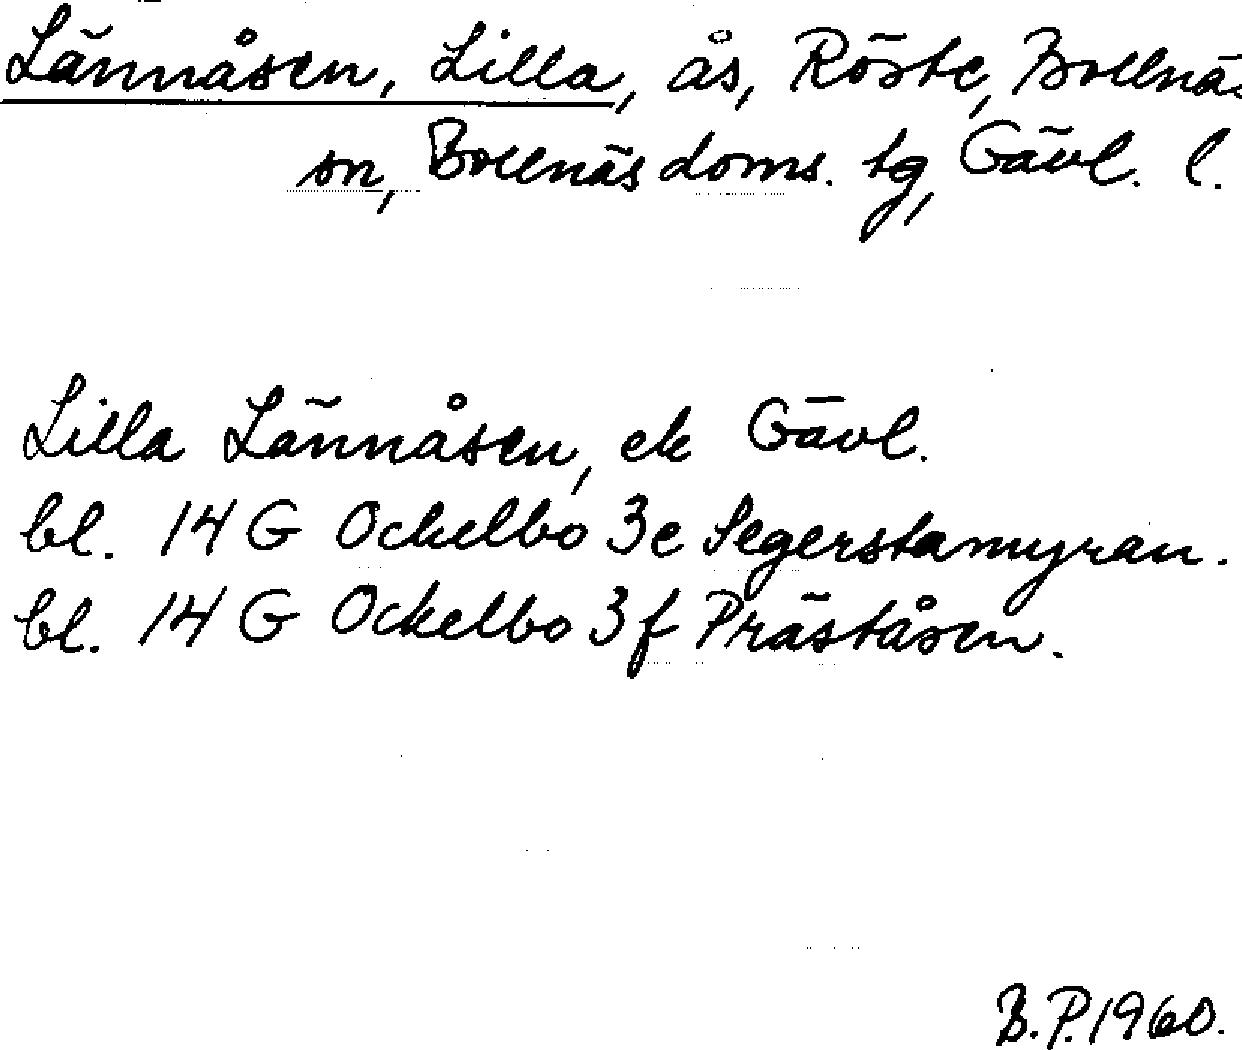 Lännåsen, Lilla, ås, Röste, Bollnäs
sn, Bollnäs doms. tg, Gävl. l.
Lilla Lännåsen, ek Gävl.
bl. 14 G Ockelbo 3e Segerstamyran.
bl. 14 G Ockelbo 3f Präståsen.
B.P. 1960.